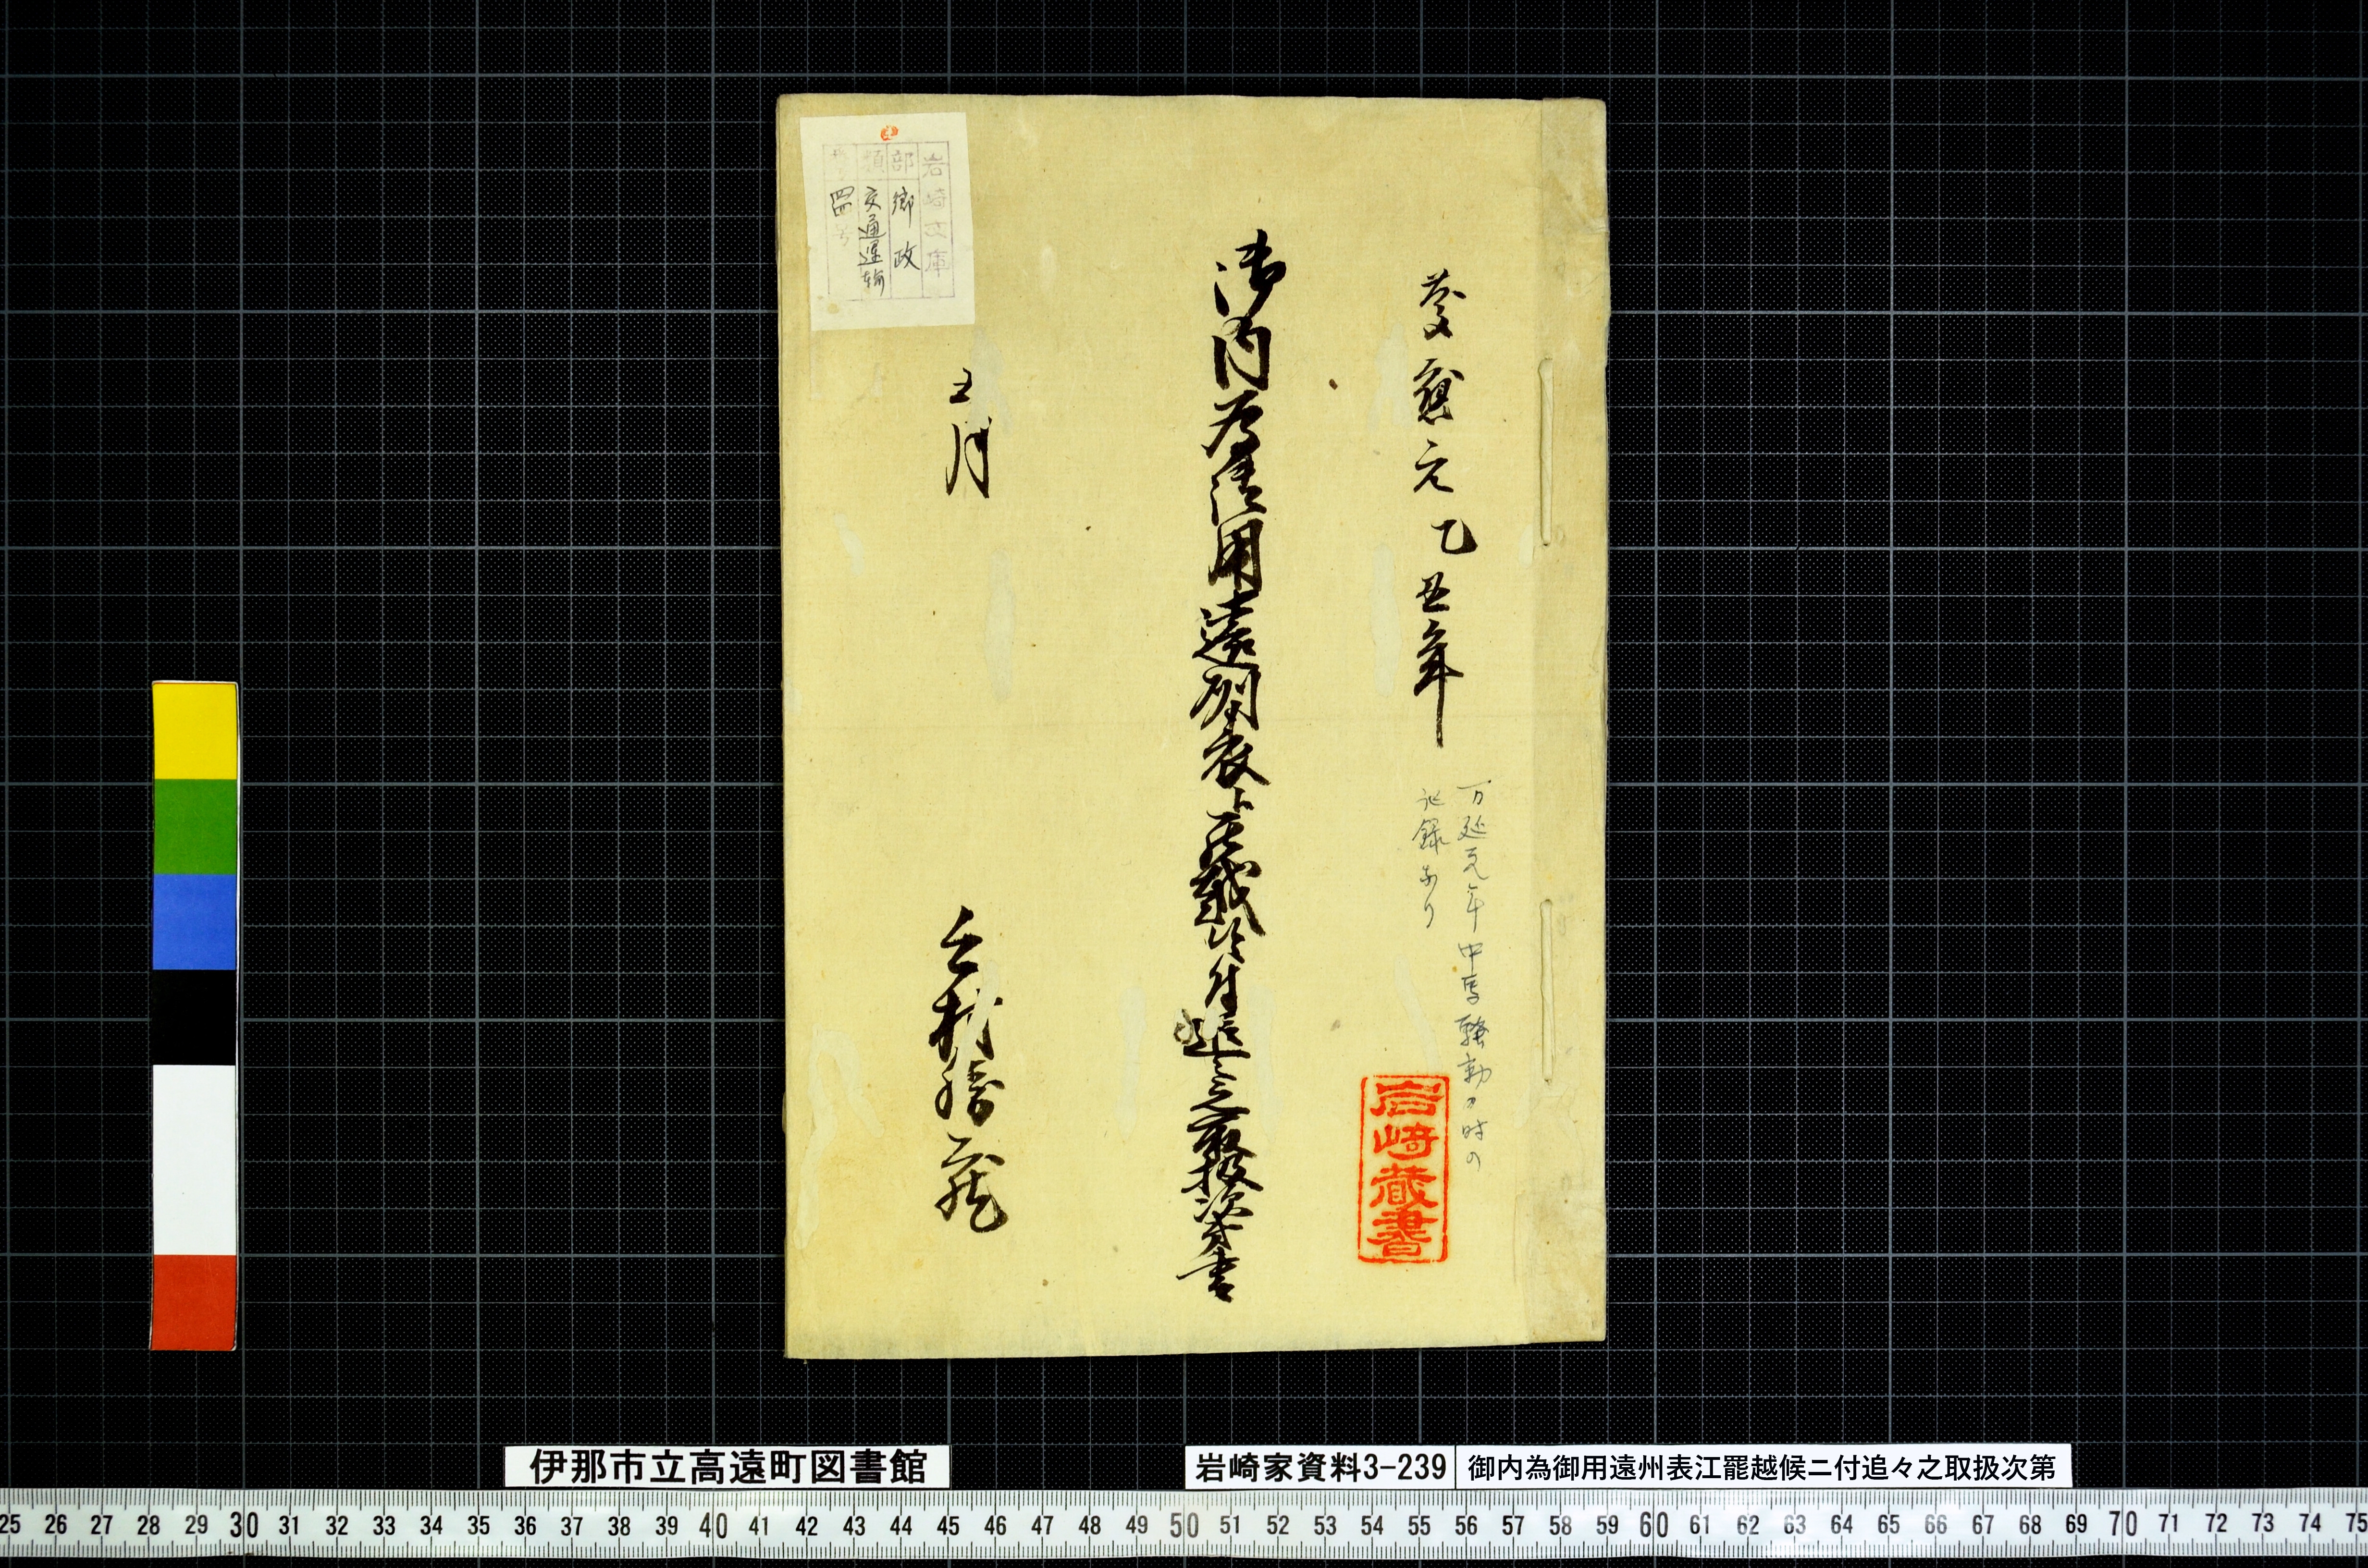 慶應元乙丑年
万延元年中馬騒動の時の
記録あり
岩崎蔵書
御内為御用遠州表江罷越候ニ付追々之取扱次第書
五月
上村勝蔵
岩崎文庫
部 郷政
項 交通運輸
伊那市立高遠町図書館
岩崎家資料3-239
御内為御用遠州表江罷越候ニ付追々之取扱次第
25 26 27 28 29 30 31 32 33 34 35 36 37 38 39 40 41 42 43 44 45 46 47 48 49 50 51 52 53 54 55 56 57 58 59 60 61 62 63 64 65 66 67 68 69 70 71 72 73 74 75